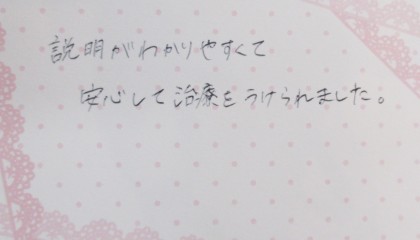 説明がわかりやすくて
安心して治療をうけられました。